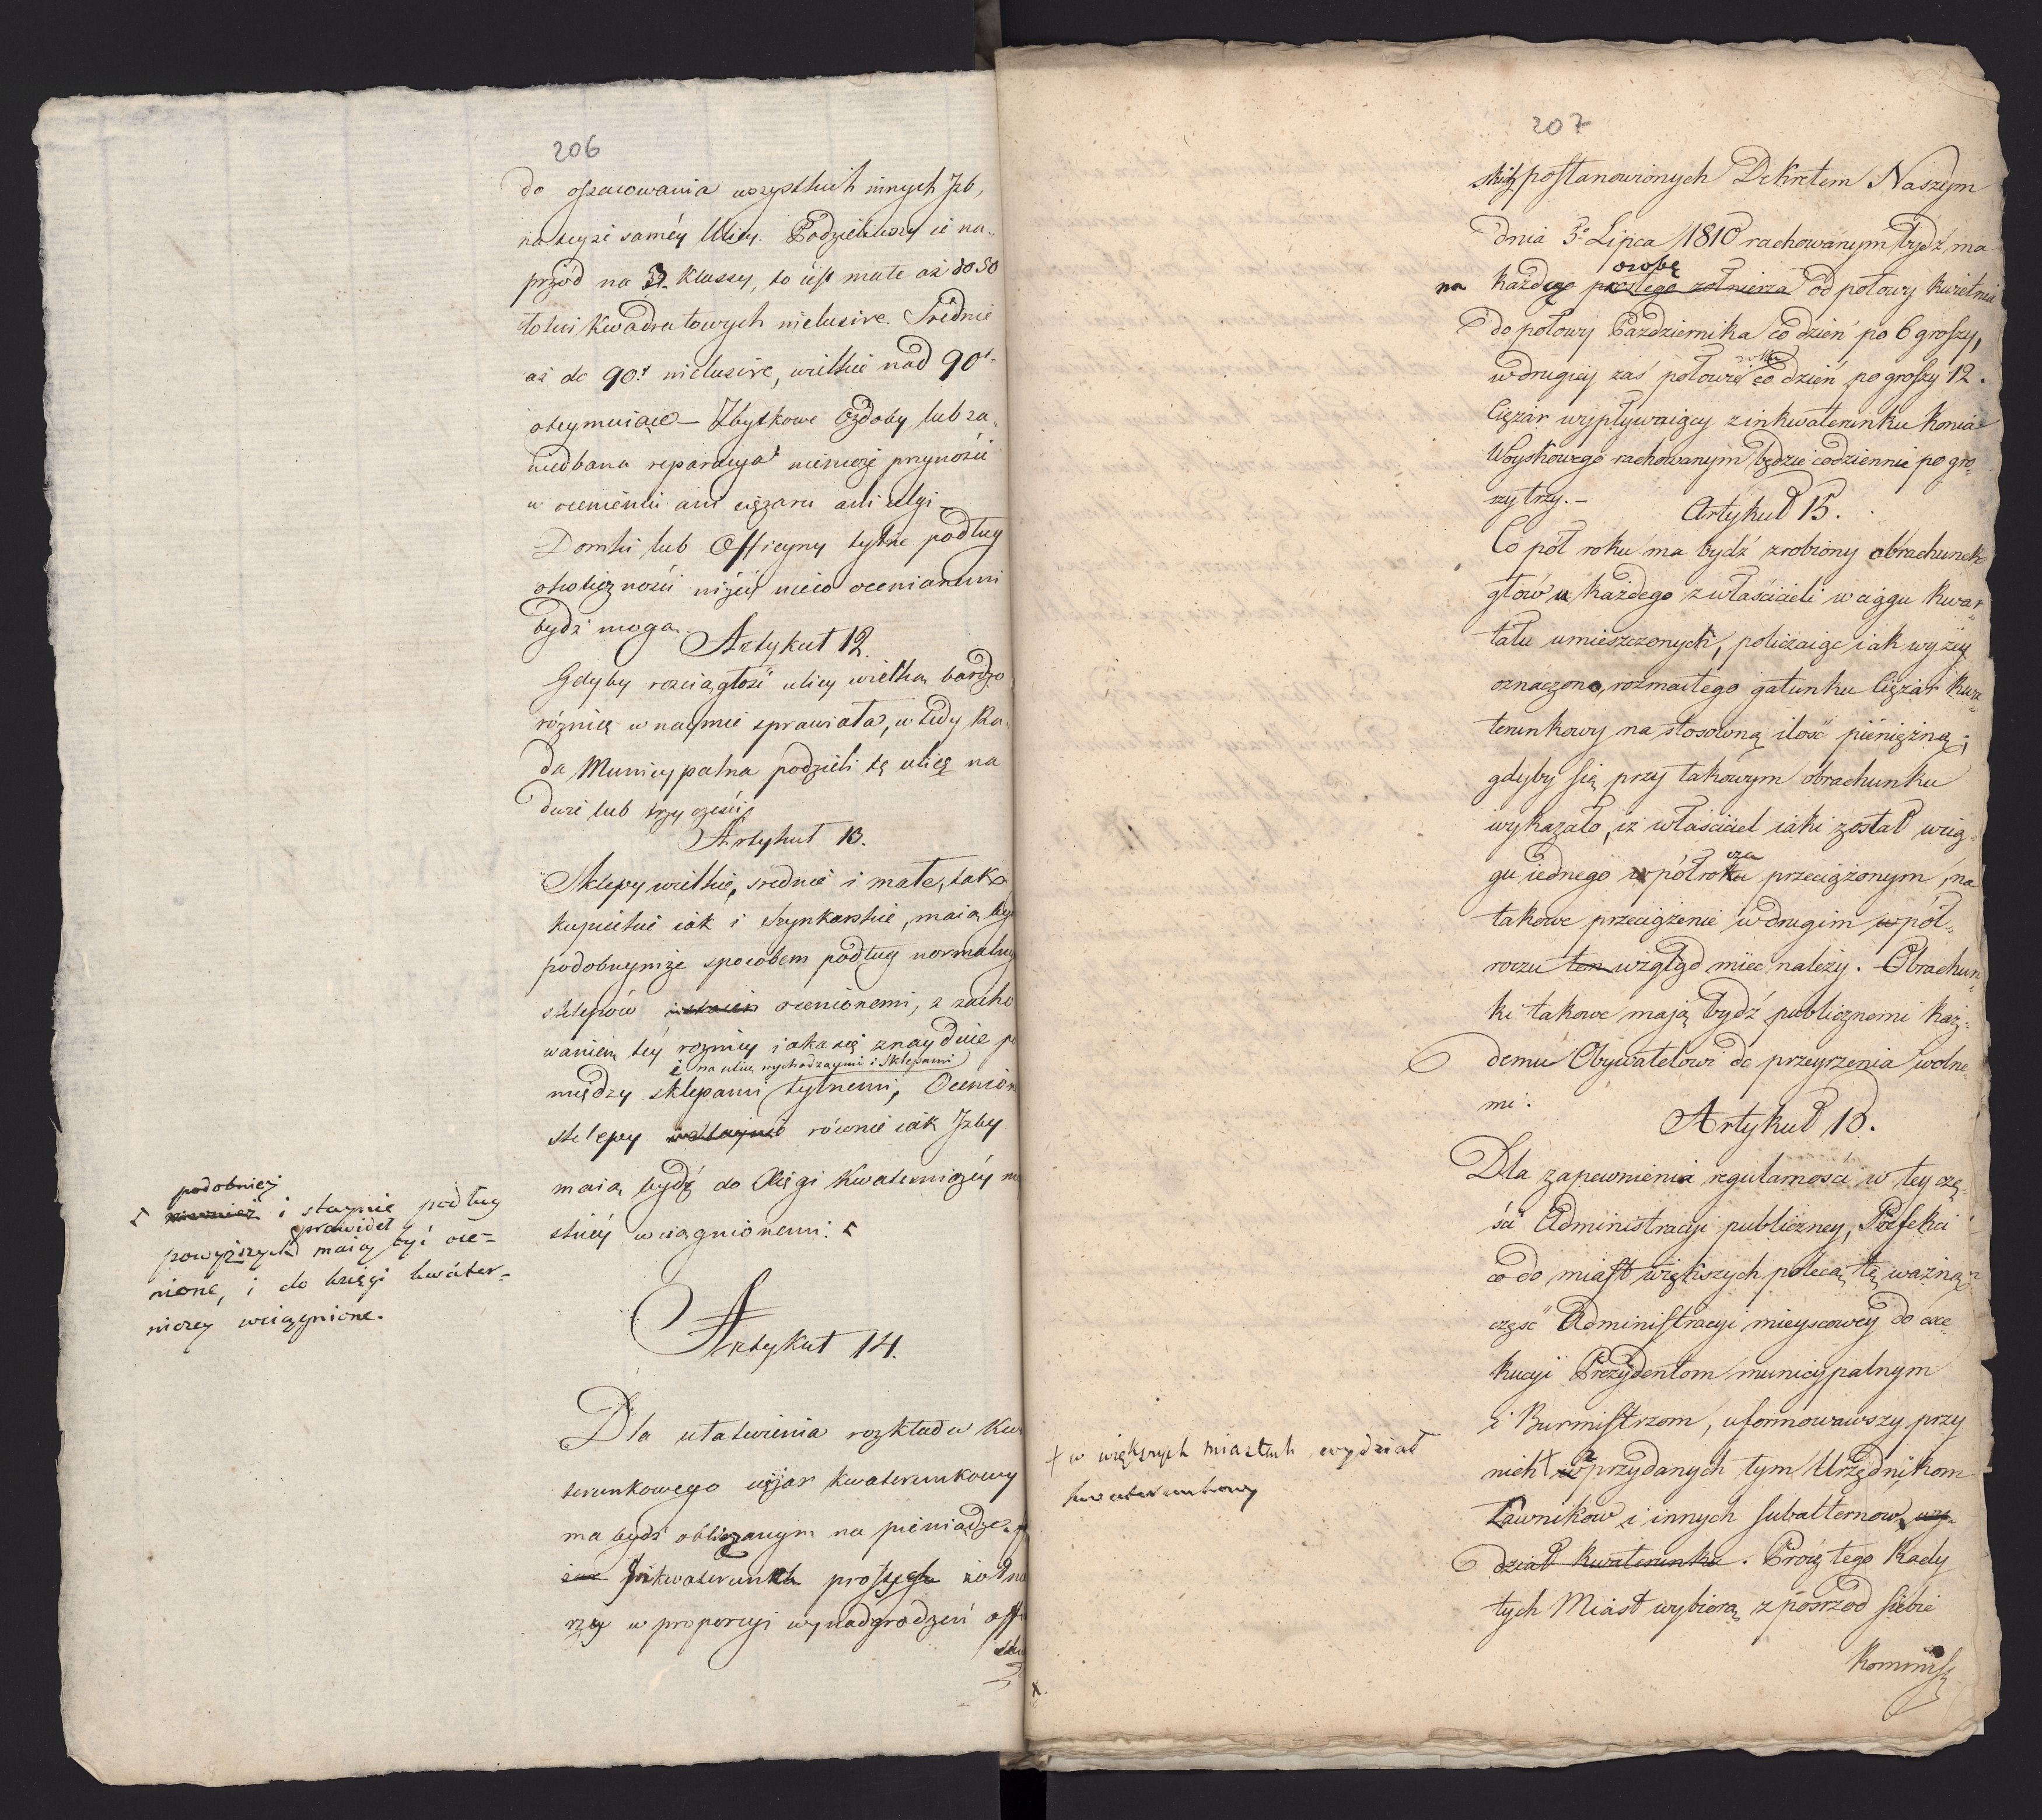 206
do oszacowania wszystkich innych Izb,
na teyże saméy Ulicy. Podzieliwszy ie na„
przód na 3. Klassy, to iest małe aż do 50
łokci kwadratowych inclusive. Średnie
aż do 90.t inclusive, wielkie nad 90t
otrzymuiące – Zbytkowe Ozdoby, lub za„
niedbana reparacya niemoże przynosić
w ocenieniu ani ciężaru ani ulgi –
Domki lub Officyny tylne podług
okoliczności niżéy nieco ocenianemi
bydź mogą.
Artykuł 12.
Gdyby rozciągłość ulicy wielką bardzo
różnicę w naymie sprawiała, w tedy Ra„
da Municypalna podzieli tę ulicę na
dwie lub trzy części.
Artykuł 13.
Sklepy wielkie, srednie i małe, tak
kupieckie iak i Szynkarskie, maią by
podobnymże sposobem podług normalny
sklepów ocenionemi, z zacho
waniem téy rożnicy iaka się znayduie po
i na ulicę wychodzącymi i Sklepami
między sklepami tylnemi, Ocenion
sklepy równie iak Izby
maią bydź do Xięgi Kwaterniczéy m
skiéy wciągnionemi.
podobnież
również i staynie podług
prawideł
powyższych maią być oce–
nione, i do księgi kwater–
niczey wciągnione.
Artykuł 14.
Dla ułatwienia rozkładu Kwa
terunkowego ciężar kwaterunkowy
ma bydź obliczanym na pieniądze.
Inkwaterunek prostych żołnie
rzy w proporcyi wynadgrodzeń offi
207
skich postanowionych Dekretem Naszym
dnia 3o Lipca 1810 rachowanym bydź ma
osobę
na każdego prostego żołnierza od połowy kwietnia
do połowy Pazdziernika co dzień po 6 groszy,
roku
w drugiey zaś połowie co dzień po groszy 12.
Ciężar wypływaiący z inkwaterunku konia
Woyskowego rachowanym będzie codziennie po gro„
szy trzy. –
Artykuł 15.
Co pół roku ma bydź zrobiony obrachunek
głów u każdego z właścicieli w ciągu kwar„
tału umieszczonych, policzaiąc iak wyżey
oznaczono, rozmaitego gatunku Ciężar kwa„
terunkowy na stosowną ilość pieniężną;
gdyby się przy takowym obrachunku
wykazało, iż właściciel iaki został wcią„
cza
gu iednego w półroku przeciążonym, na
takowe przeciążenie w drugim w pół„
roczu ten wzgląd mieć należy. Obrachun„
ki takowe mają bydź publicznemi każ„
demu Obywatelowi do przeyrzenia wolne„
mi.
Artykuł 16.
Dla zapewnienia regularności w tey czę„
ści Administracyi publiczney, Prefekci
co do miast większych polecą tę ważną
część Administracyi mieyscowéy do exe„
kucyi Prezydentom municypalnym
i Burmistrzom, uformowawszy przy
nich + z przydanych tym Urzędnikom
Ławnikow i innych subalternow wy„
dział kwaterunku. Prócz tego Rady
tych Miast wybiorą z pośrzod siebie
Kommiss
+ w większych miastach wydział
kwaterunkowy